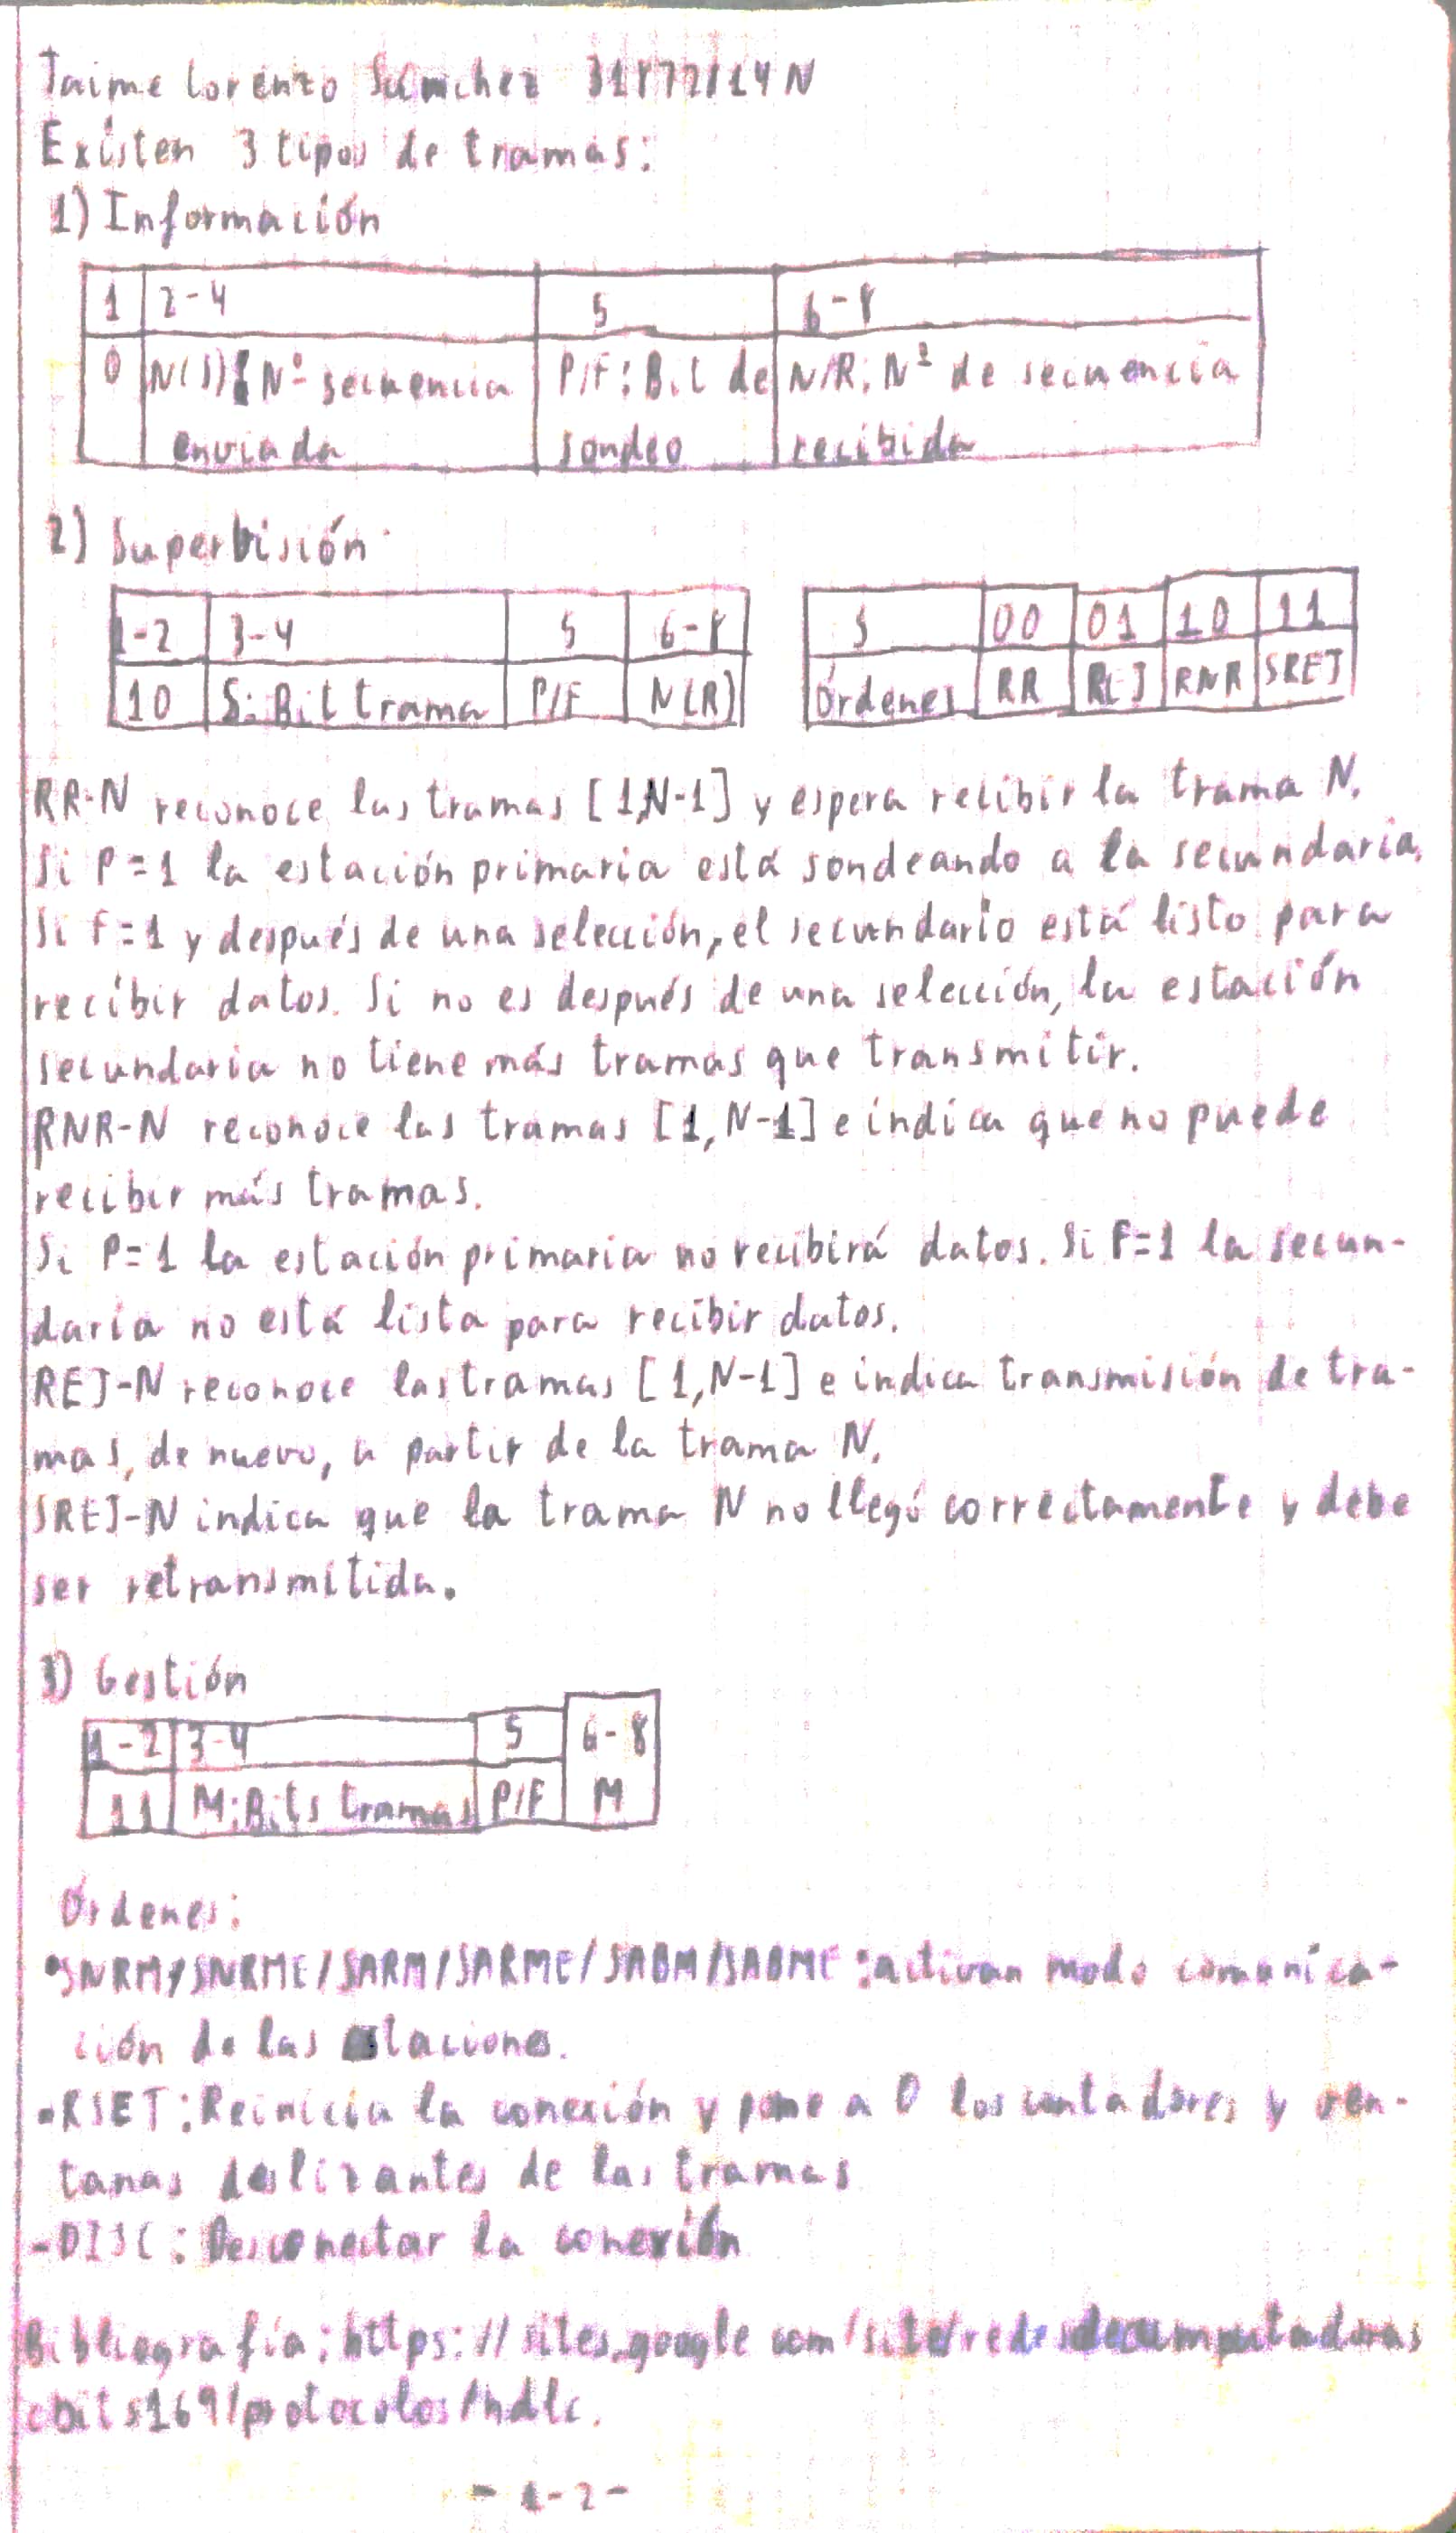 Jaime Lorenzo Sánchez
Existen 3 tipos de tramas:
1) Información
1 2-4 5 6-8
0 N(S): Nº secuencia P/F: Bit de N/R: Nº de secuencia
enviada sondeo recibida
2) Superbisión
1-2 3-4 5 6-8 S 00 01 10 11
10 S: Bit trama P/F N(R) Órdenes RR REJ RNR SREJ
RR-N reconoce las tramas [1,N-1] y espera recibir la trama N.
Si P=1 la estación primaria está sondeando a la secundaria.
Si F=1 y después de una selección, el secundario está listo para
recibir datos. Si no es después de una selección, la estación
secundaria no tiene más tramas que transmitir.
RNR-N reconoce las tramas [1, N-1] e indica que no puede
recibir más tramas.
Si P=1 la estación primaria no recibirá datos. Si F=1 la secun-
daria no está lista para recibir datos.
REJ-N reconoce las tramas [1, N-1] e indica transmisión de tra-
mas, de nuevo, a partir de la trama N.
SREJ-N indica que la trama N no llegó correctamente y debe
ser retransmitida.
3) Gestión
1-2 3-4 5 6-8
11 M: Bits tramas P/F M
Órdenes:
•SNRM/SNRME/SARM/SARME/SABM/SABME: activan modo comunica-
ción de las
-RSET: Reinicia la conexión y pone a 0 los contadores y ven-
tanas deslizantes de las tramas
-DISC: Desconectar la conexión
Bibliografía: https://sites.google com/site/redesdecomputadoras
cbits169/protocolos/hdlc.
- 1-2 -